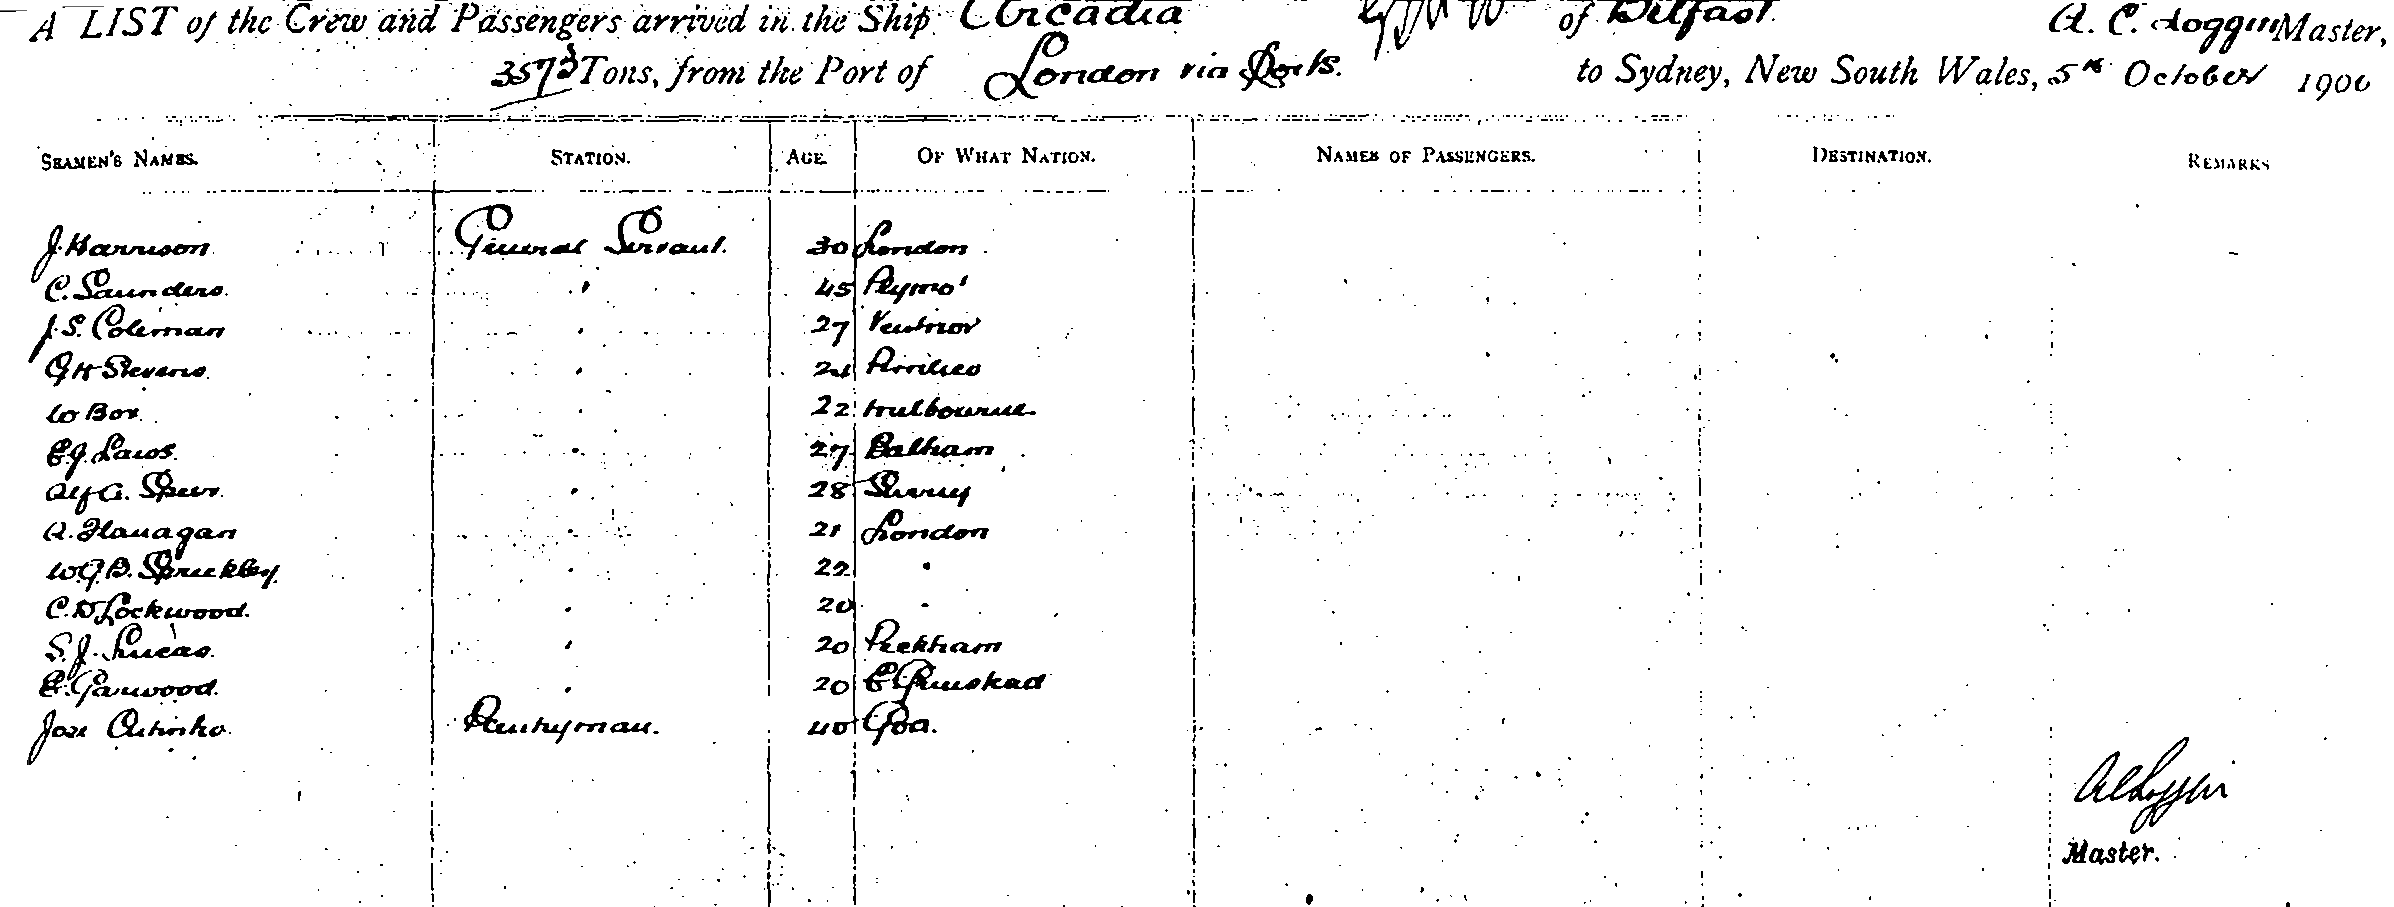 A LIST of the Crew and Passengers arrived in the Ship Arcadia of Belfast A. C. Loggin Master,
3573 Tons, from the Port of London via Ports. to Sydney, New South Wales, 5th October 1900
SEAMEN'S NAMES. STATION. AGE. OF WHAT NATION. NAMES OF PASSENGERS. DESTINATION. REMARKS
J. Harrison General Servant. 30 London
C. Saunders. " 45 Plymo'
J. S. Coleman " 27 Ventnor
G H Stevens. " 24 Pimlico
W Box. " 22 Melbourne.
E. J. Laws. " 27 Balham
Alf G. Spurr. " 28 Surrey
A. Flanagan " 21 London
W G B. Spruckley " 22 "
C. D Lockwood. " 20 "
S. J. Lucas. " 20 Peckham
E. Garwood. " 20 E. Grinstead
Jose Pantryman. 40 Goa.
A C Loggin
Master.